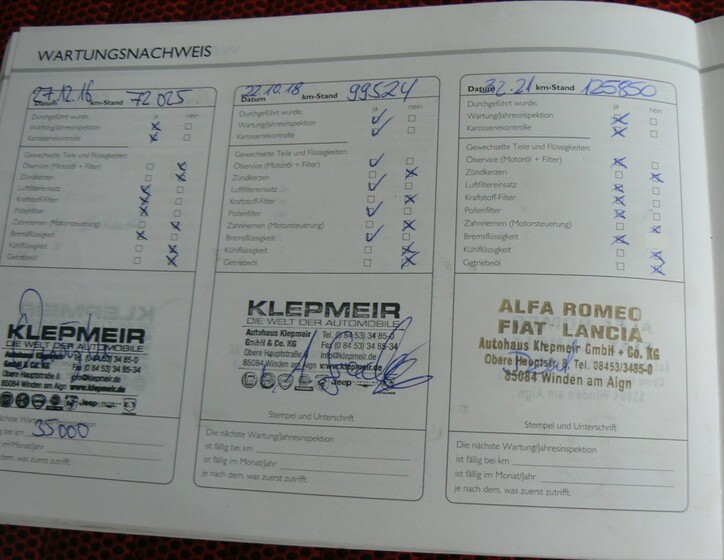 WARTUNGSNACHWEIS
27.12.16 km-Stand 72 025
Datum
Durchgeführt wurde: ja nein
Wartung/Jahresinspektion
Karosseriekontrolle
Gewechselte Teile und Flüssigkeiten:
Ölservice (Motoröl + Filter)
Zündkerzen
Luftfiltereinsatz
Kraftstoff-Filter
Pollenfilter
Zahnriemen (Motorsteuerung)
Bremsflüssigkeit
Kühlflüssigkeit
Getriebeöl
KLEPMEIR
DIE WELT DER AUTOMOBILE
Autohaus Klepmeir
GmbH & Co. KG
Obere Hauptstraße
85084 Winden am Aign
(0 84 53) 34 85-0
(0 84 53) 34 85-34
info@klepmeir.com
www.klepmeir.com
Jeep
nächste Wartung/Jahresinspektion
bei km 35000
im Monat/Jahr
dem, was zuerst zutrifft.
22.10.18
Datum km-Stand 99524
Durchgeführt wurde: ja nein
Wartung/Jahresinspektion
Karosseriekontrolle
Gewechselte Teile und Flüssigkeiten:
Ölservice (Motoröl + Filter)
Zündkerzen
Luftfiltereinsatz
Kraftstoff-Filter
Pollenfilter
Zahnriemen (Motorsteuerung)
Bremsflüssigkeit
Kühlflüssigkeit
Getriebeöl
KLEPMEIR
DIE WELT DER AUTOMOBILE
Autohaus Klepmeir Tel. (0 84 53) 34 85-0
GmbH & Co. KG Fax (0 84 53) 34 85-34
Obere Hauptstraße info@klepmeir.com
85084 Winden am Aign www.klepmeir.com
Jeep
Stempel und Unterschrift
Die nächste Wartung/Jahresinspektion
ist fällig bei km
ist fällig im Monat/Jahr
je nach dem, was zuerst zutrifft.
Datum 32.21 km-Stand 125850
Durchgeführt wurde: ja nein
Wartung/Jahresinspektion
Karosseriekontrolle
Gewechselte Teile und Flüssigkeiten:
Ölservice (Motoröl + Filter)
Zündkerzen
Luftfiltereinsatz
Kraftstoff-Filter
Pollenfilter
Zahnriemen (Motorsteuerung)
Bremsflüssigkeit
Kühlflüssigkeit
Getriebeöl
ALFA ROMEO
FIAT LANCIA
Autohaus Klepmeir GmbH + Co. KG
Obere Hauptstr. 8, Tel. 08453/3485-0
85084 Winden am Aign
Stempel und Unterschrift
Die nächste Wartung/Jahresinspektion
ist fällig bei km
ist fällig im Monat/Jahr
je nach dem, was zuerst zutrifft.